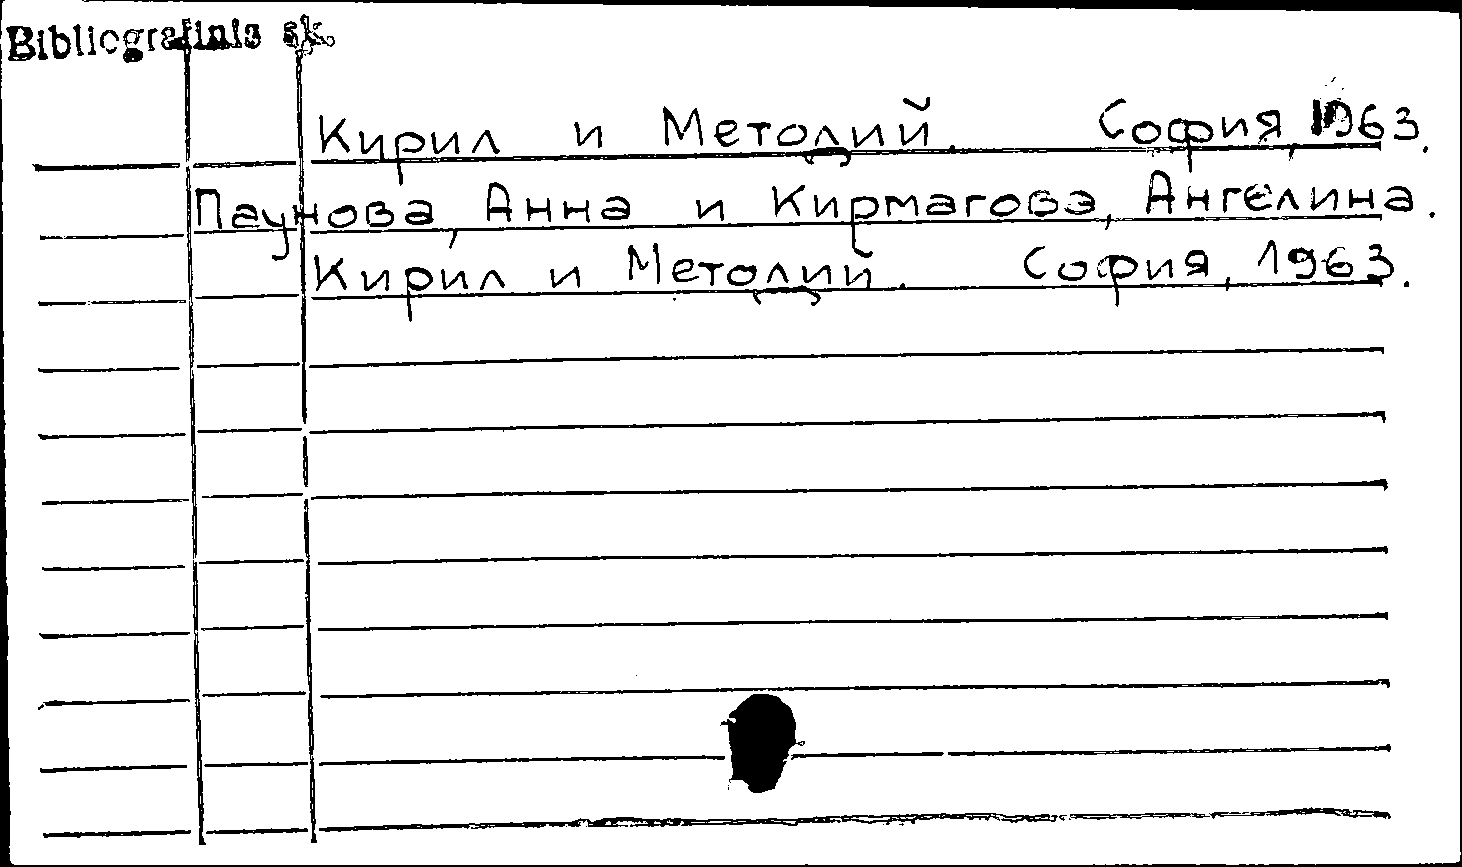 Bibliografinis sk.
Кирил и Методий. София, 1963.
Паунова, Анна и Кирмагова, Ангелина.
Кирил и Методий. София, 1963.